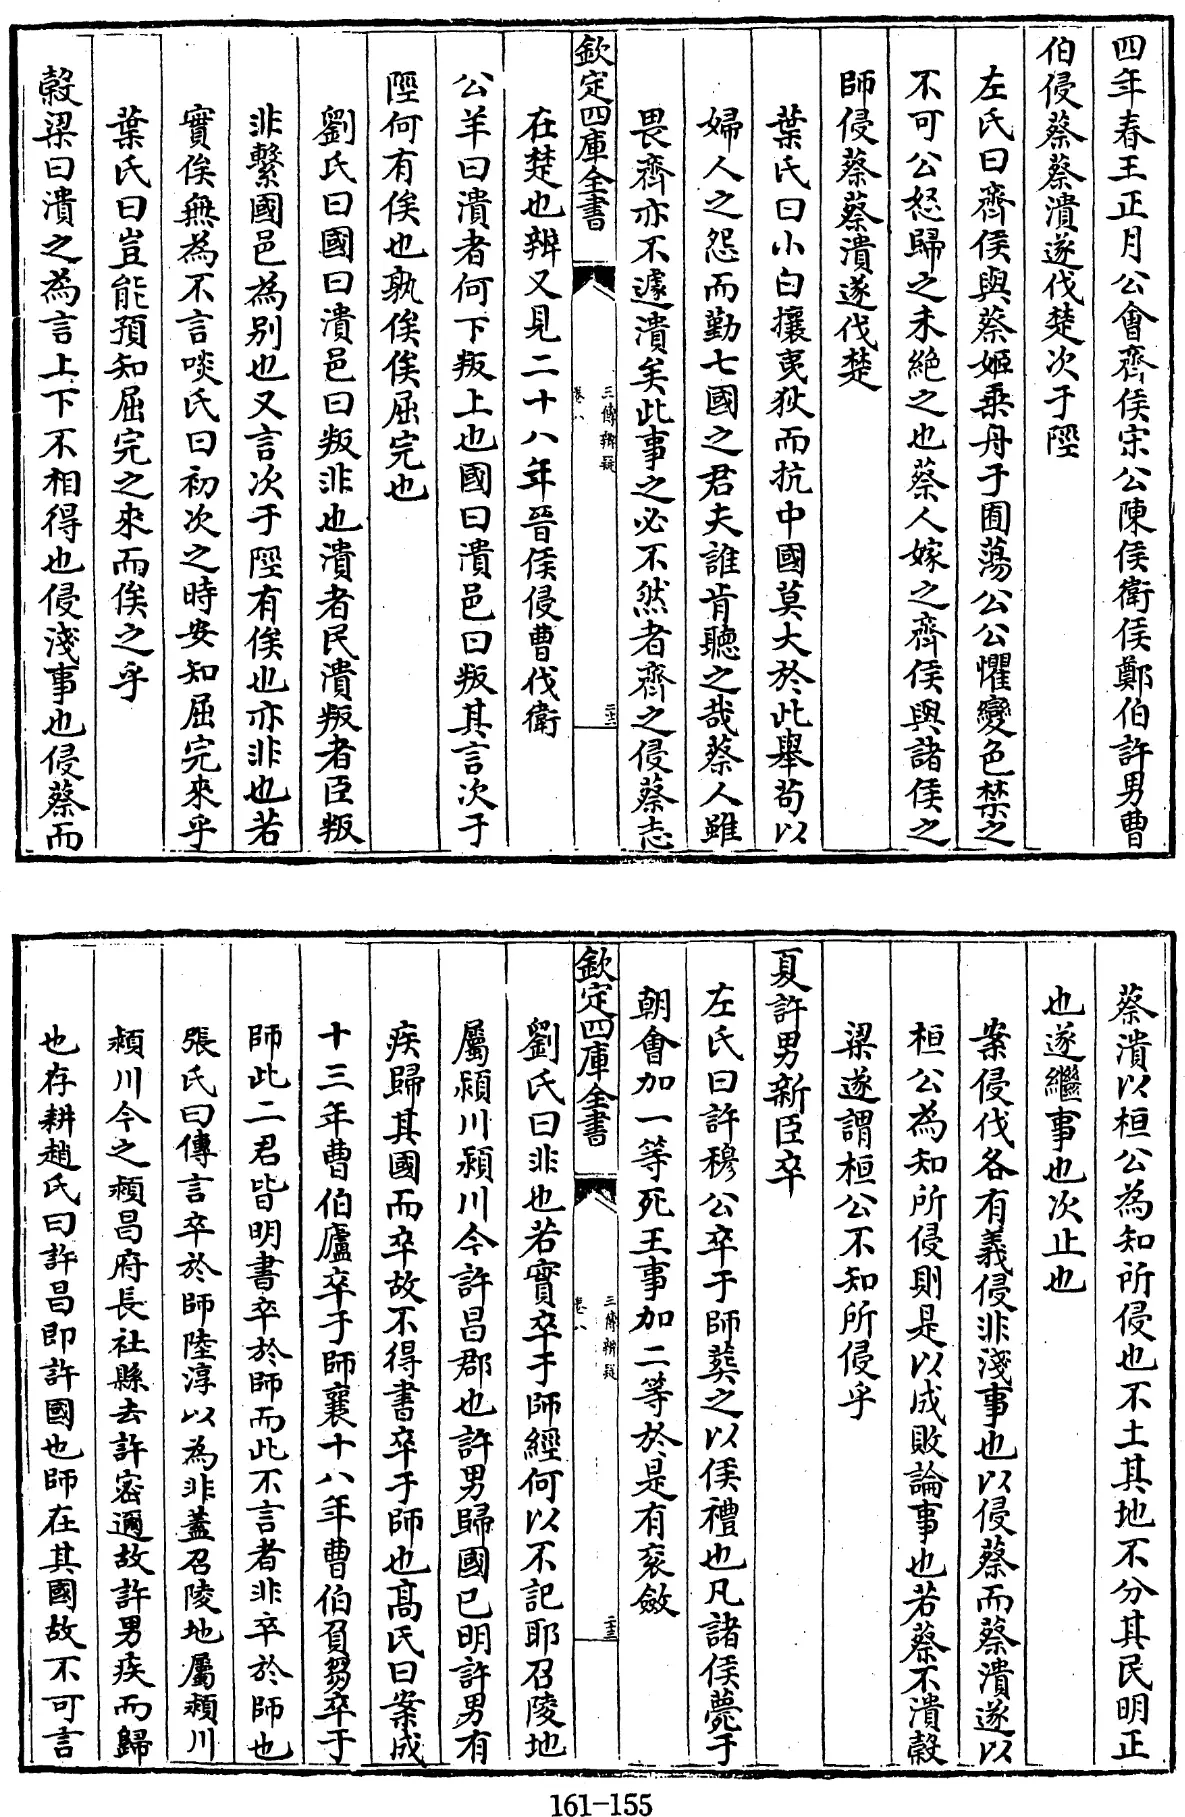 四年春王正月公會齊侯宋公陳侯衛侯鄭伯許男曹
伯侵蔡蔡潰遂伐楚次于陘
左氏曰齊侯與蔡姬乗舟于囿蕩公公懼變色禁之
不可公怒歸之未絶之也蔡人嫁之齊侯與諸侯之
師侵蔡蔡潰遂伐楚
葉氏曰小白攘夷狄而抗中國莫大於此舉茍以
婦人之怨而勤七國之君夫誰肯聽之哉蔡人雖
畏齊亦不遽潰矣此事之必不然者齊之侵蔡志
欽定四庫全書
三傳辨疑
卷八
二十二
在楚也辨又見二十八年晉侯侵曹伐衛
公羊曰潰者何下叛上也國曰潰邑曰叛其言次于
陘何有俟也孰俟俟屈完也
劉氏曰國曰潰邑曰叛非也潰者民潰叛者臣叛
非繫國邑為别也又言次于陘有俟也亦非也若
實俟無為不言啖氏曰初次之時安知屈完來乎
葉氏曰豈能預知屈完之來而俟之乎
穀梁曰潰之為言上下不相得也侵淺事也侵蔡而
蔡潰以桓公為知所侵也不土其地不分其民明正
也遂繼事也次止也
案侵伐各有義侵非淺事也以侵蔡而蔡潰遂以
桓公為知所侵則是以成敗論事也若蔡不潰穀
梁遂謂桓公不知所侵乎
夏許男新臣卒
左氏曰許穆公卒于師葬之以侯禮也凡諸侯薨于
朝會加一等死王事加二等於是有衮斂
欽定四庫全書
三傳辨疑
卷八
二十三
劉氏曰非也若實卒于師經何以不記耶召陵地
屬潁川潁川今許昌郡也許男歸國已明許男有
疾歸其國而卒故不得書卒于師也髙氏曰案成
十三年曹伯廬卒于師襄十八年曹伯負芻卒于
師此二君皆明書卒於師而此不言者非卒於師也
張氏曰傳言卒於師陸淳以為非蓋召陵地屬潁川
潁川今之潁昌府長社縣去許密邇故許男疾而歸
也存耕趙氏曰許昌即許國也師在其國故不可言
161-155